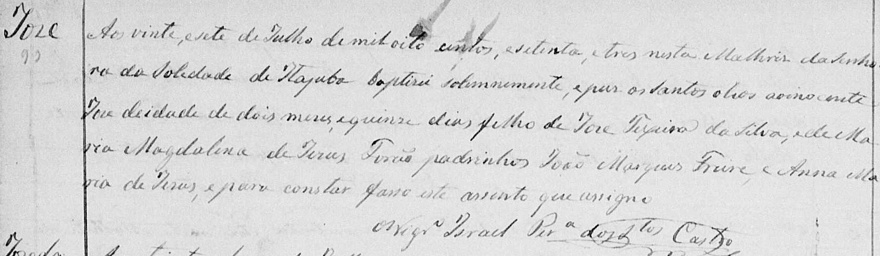 Joze
Aos vinte, e sete de Julho de mil oito centos, e setenta, e tres nesta Mathriz da Senho-
ra da Soledade de Itajuba Baptizei solemnemente, e pus os santos olios ao inocente
Joze de idade de dois mezes, e quinze dias filho de Joze Teixeira da Silva, e de Ma-
ria Magdalena de Jezus Forão padrinhos João Marques Freire, e Anna Ma-
ria de Jezus, e para constar fasso este assento que assigno
O Vigrº Israel Perª dos Stos Castro